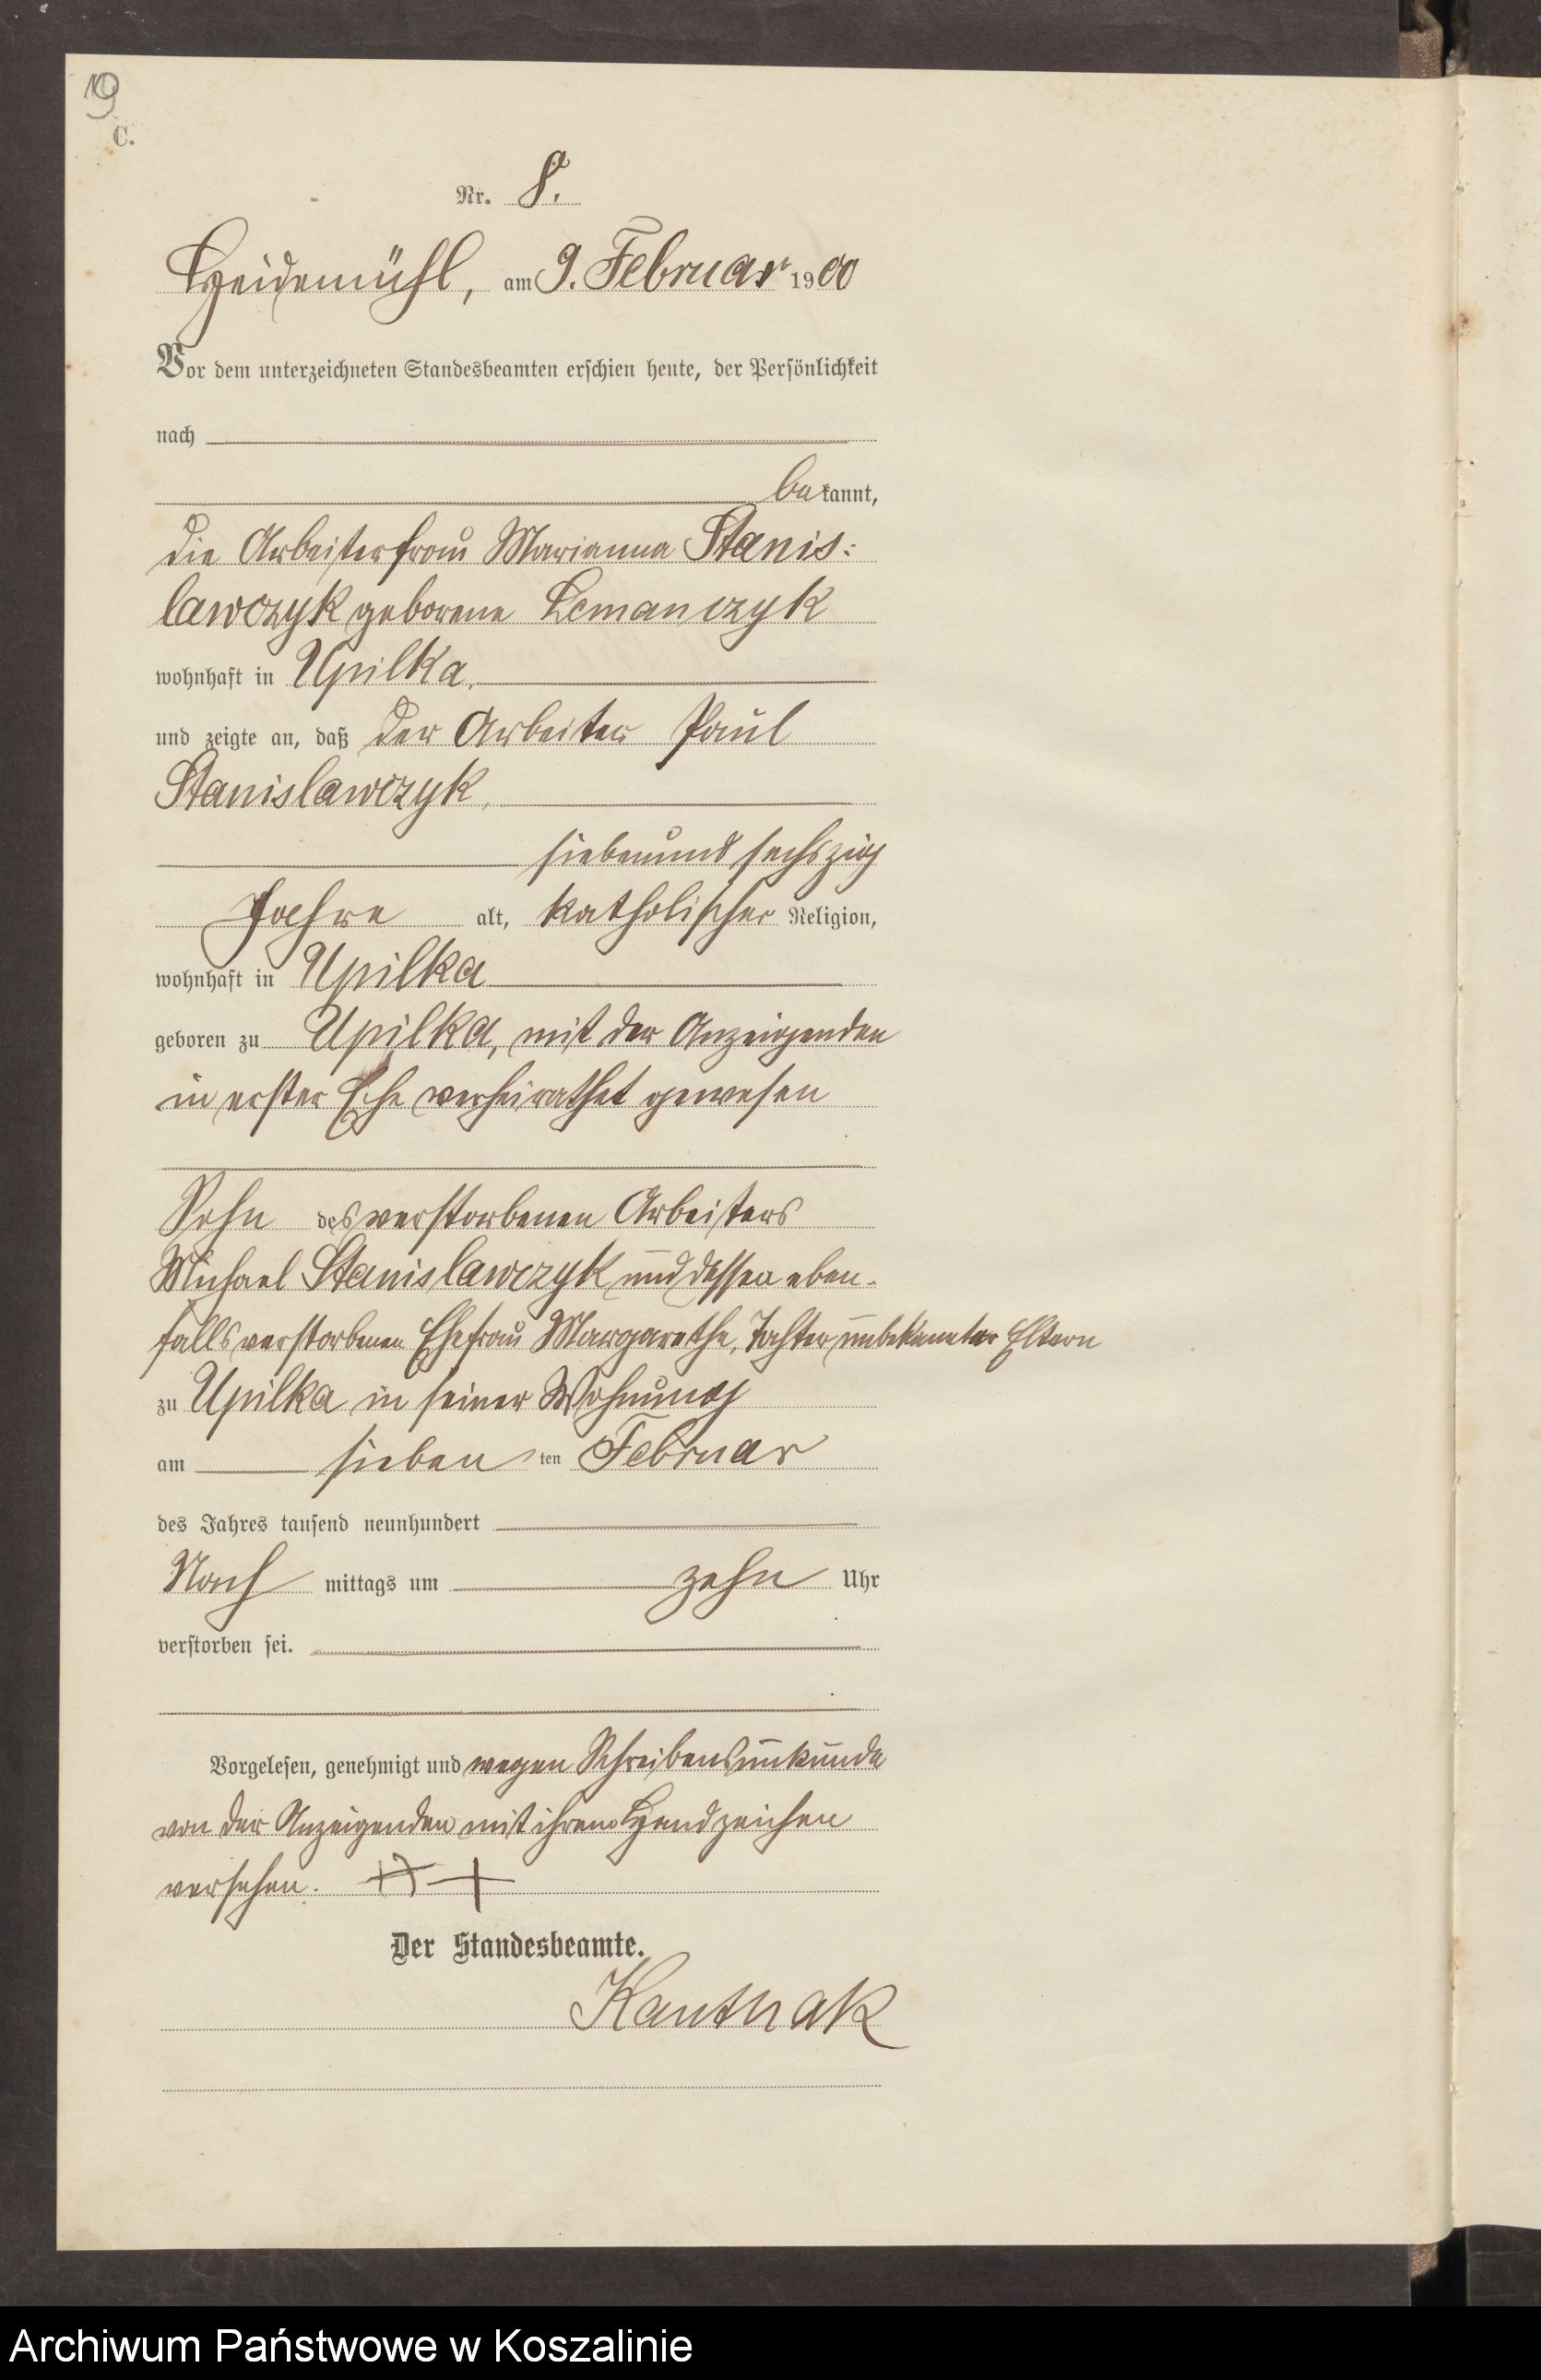 19
C.
Nr. 8.
Heidemühl, am 9. Februar 1900
Vor dem unterzeichneten Standesbeamten erschien heute, der Persönlichkeit
nach
bekannt,
die Arbeiterfrau Marianna Stanis:
lawczyk geborene Lemanczyk
wohnhaft in Upilka,
und zeigte an, daß der Arbeiter Paul
Stanislawczyk,
siebenundsechszig
Jahre alt, katholischer Religion,
wohnhaft in Upilka
geboren zu Upilka, mit der Anzeigenden
in erster Ehe verheirathet gewesen
Sohn des verstorbenen Arbeiters
Michael Stanislawczyk und dessen eben-
falls verstorbenen Ehefrau Margarethe, Tochter unbekannter Eltern
zu Upilka in seiner Wohnung
am sieben ten Februar
des Jahres tausend neunhundert
Nach mittags um zehn Uhr
verstorben sei.
Vorgelesen, genehmigt und wegen Schreibensunkunde
von der Anzeigenden mit ihrem Handzeichen
versehen. +++
Der Standesbeamte.
Kantnak
Archiwum Państwowe w Koszalinie